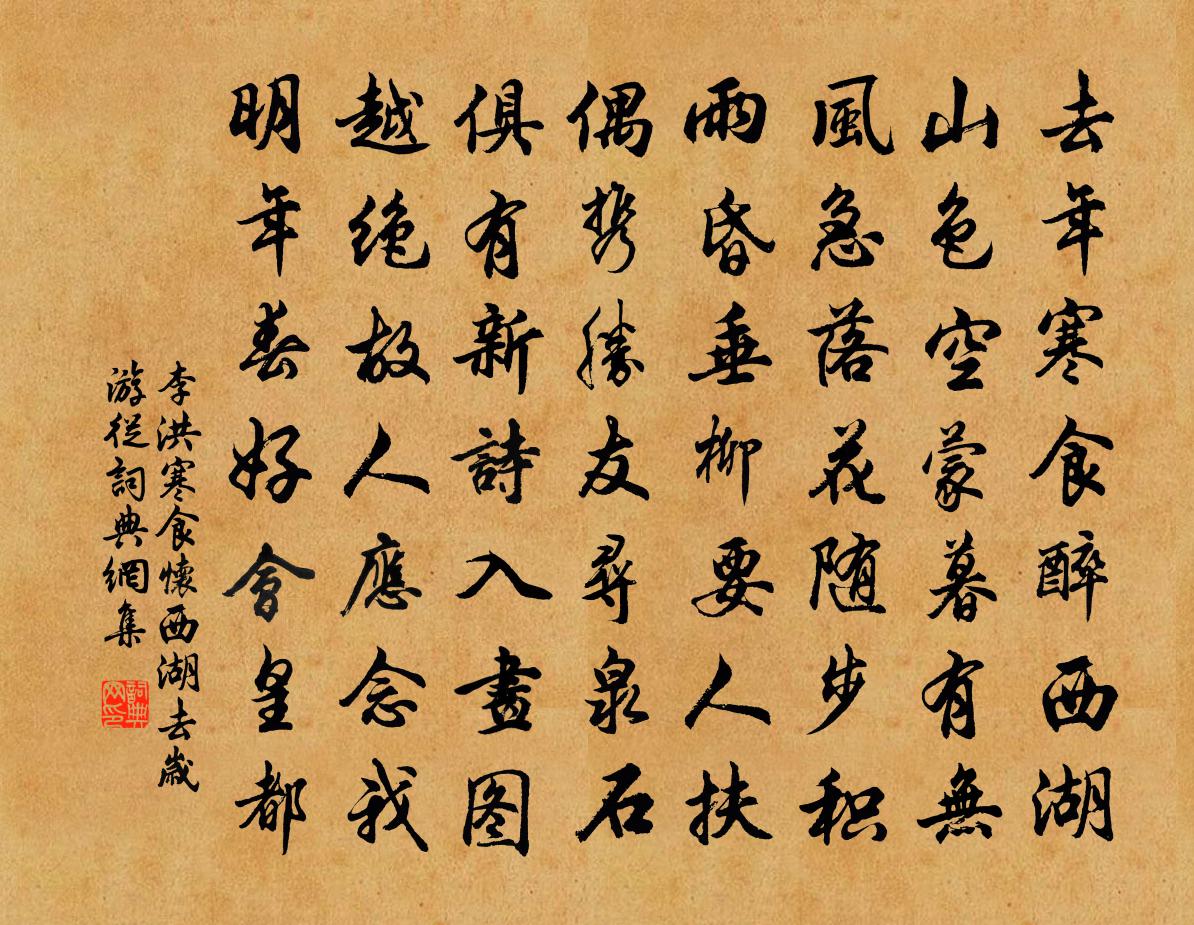 去年寒食醉西湖
山色空蒙暮有無
風急落花随步积
雨昏垂柳要人扶
偶携勝友尋泉石
俱有新詩入畫图
越绝故人應念我
明年春好會皇都
李洪寒食懷西湖去歲
游從詞典網集
詞典网印